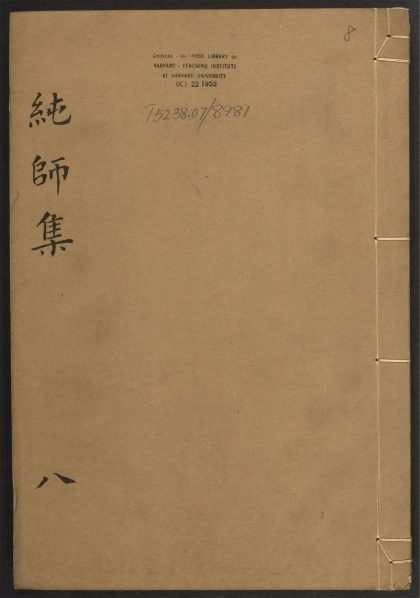 8
CHINESE - JAPANESE LIBRARY OF
HARVARD - YENCHING INSTITUTE
AT HARVARD UNIVERSITY
OCT 22 1953
T5238.07/8981
純師集
八